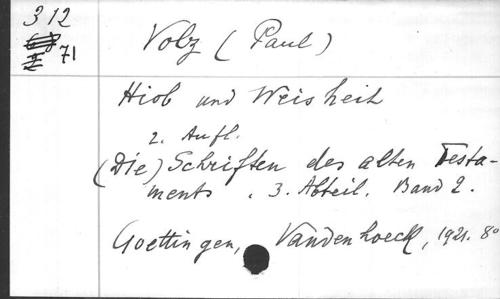 312
71
Volz (Paul)
Hiob und Weisheit
2. Aufl.
(Die) Schriften des alten Testa-
ments . 3. Abteil. Band 2.
Goettingen, Vandenhoeck, 1921. 8°